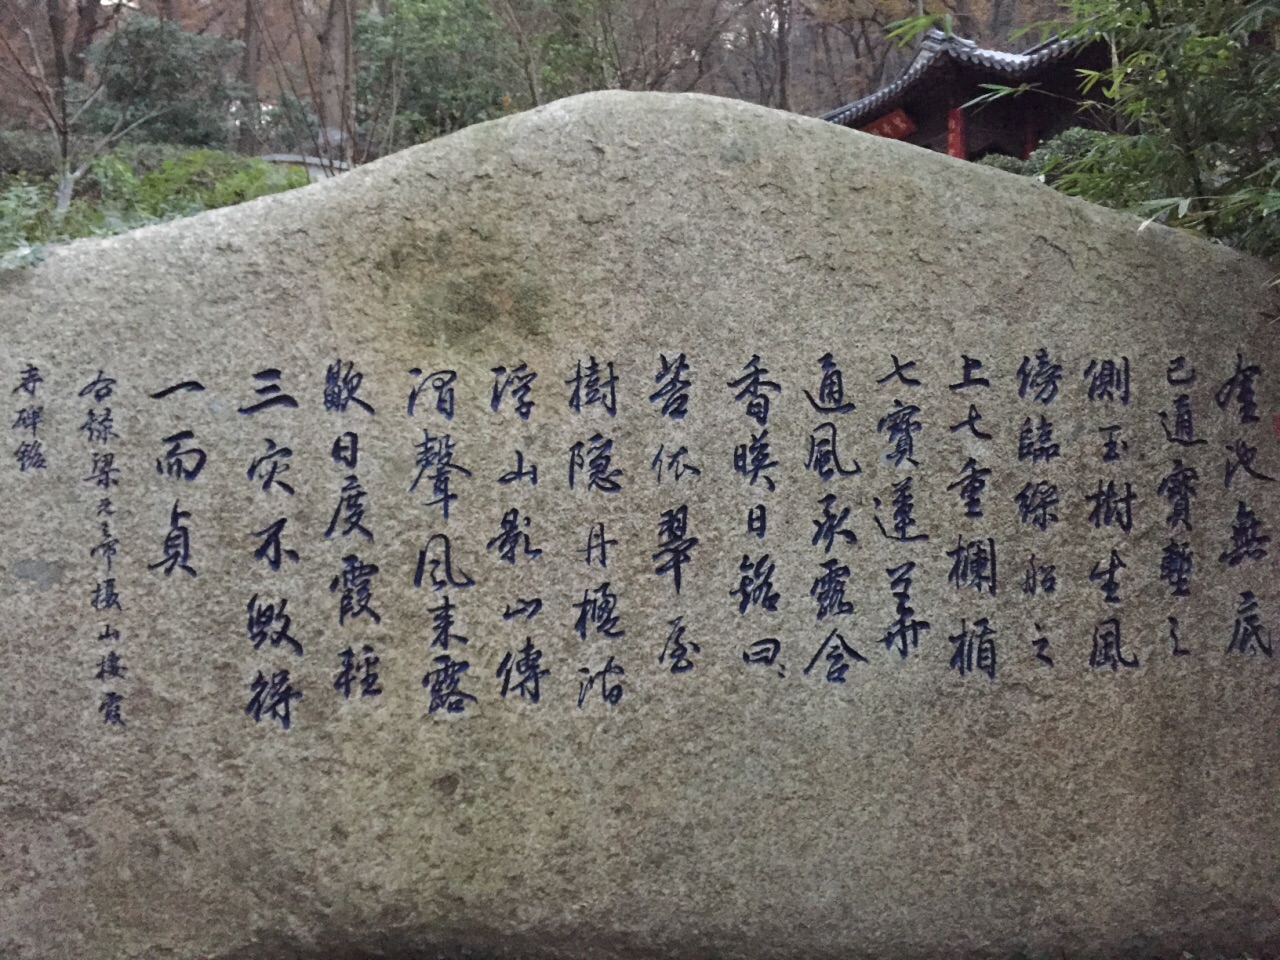 金池無底
已通寶塹之
側玉樹生風
傍臨綵船之
上七重欄楯
七寶蓮華
通風承露含
香暎日銘曰
苔依翠屋
樹隱丹楹澗
浮山影山傳
澗聲風来露
歇日度霞輕
三灾不毀得
一而貞
右錄梁元帝攝山棲霞
寺碑銘